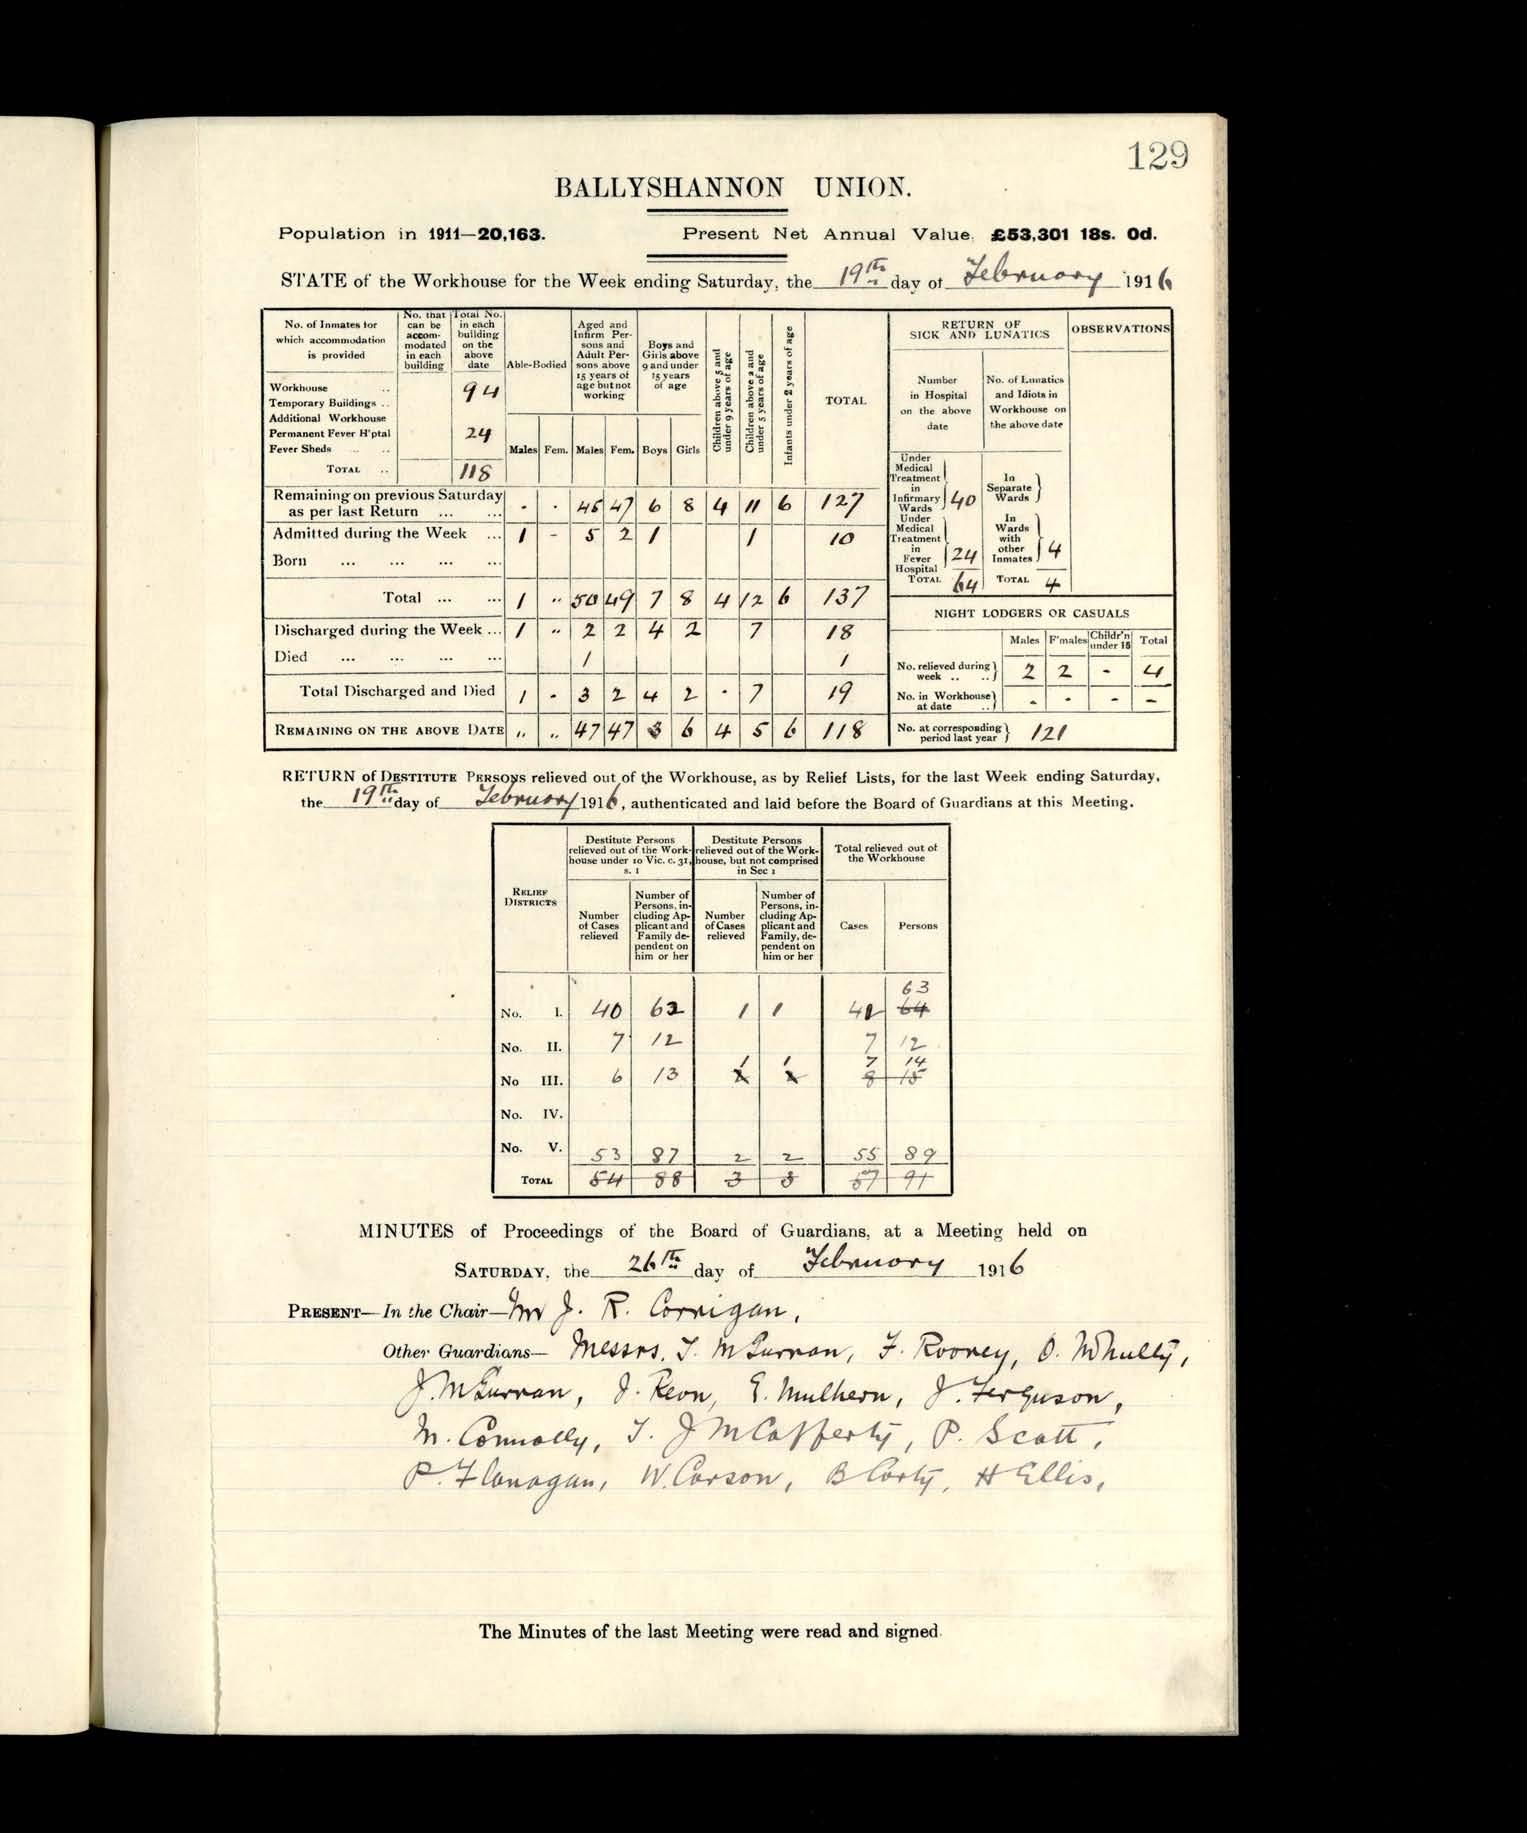 129
BALLYSHANNON UNION.
Population in 1911—20,163. Present Net Annual Value, £53,301 18s. 0d.
STATE of the Workhouse for the Week ending Saturday, the 19th day of February 1916
No. of Inmates for which accommodation is provided
No. that can be accommodated in each building
Total No. in each building on the above date
Able-Bodied
Aged and Infirm Persons and Adult Persons above 15 years of age but not working
Boys and Girls above 9 and under 15 years of age
Children above 5 and under 9 years of age
Children above 2 and under 5 years of age
Infants under 2 years of age
TOTAL
Males Fem. Males Fem. Boys Girls
Workhouse .. 94
Temporary Buildings ..
Additional Workhouse
Permanent Fever H'ptal 24
Fever Sheds ... ..
TOTAL .. 118
Remaining on previous Saturday as per last Return ... ... - - 45 47 6 8 4 11 6 127
Admitted during the Week ... 1 - 5 2 1 1 10
Born ... ... ... ...
Total ... ... 1 " 50 49 7 8 4 12 6 137
Discharged during the Week ... 1 " 2 2 4 2 7 18
Died ... ... ... ... 1 1
Total Discharged and Died 1 - 3 2 4 2 - 7 19
REMAINING ON THE ABOVE DATE " " 47 47 3 6 4 5 6 118
RETURN OF SICK AND LUNATICS
OBSERVATIONS
Number in Hospital on the above date
No. of Lunatics and Idiots in Workhouse on the above date
Under Medical Treatment in Infirmary Wards 40
In Separate Wards
Under Medical Treatment in Fever Hospital 24
In Wards with other Inmates 4
TOTAL 64 TOTAL 4
NIGHT LODGERS OR CASUALS
Males F'males Childr'n under 15 Total
No. relieved during week .. .. 2 2 - 4
No. in Workhouse at date .. - - - -
No. at corresponding period last year 121
RETURN of DESTITUTE PERSONS relieved out of the Workhouse, as by Relief Lists, for the last Week ending Saturday,
the 19th day of February 1916, authenticated and laid before the Board of Guardians at this Meeting.
RELIEF DISTRICTS
Destitute Persons relieved out of the Workhouse under 10 Vic. c. 31, s. 1
Destitute Persons relieved out of the Workhouse, but not comprised in Sec 1
Total relieved out of the Workhouse
Number of Cases relieved
Number of Persons, including Applicant and Family dependent on him or her
Number of Cases relieved
Number of Persons, including Applicant and Family, dependent on him or her
Cases
Persons
63
No. I. 40 62 1 1 41 64
No. II. 7 12 7 12
1 1 7 14
No III. 6 13 2 2 8 15
No. IV.
No. V. 53 87 2 2 55 89
TOTAL 54 88 3 3 57 91
MINUTES of Proceedings of the Board of Guardians, at a Meeting held on
SATURDAY, the 26th day of February 1916
PRESENT—In the Chair—Mr J. R. Corrigan,
Other Guardians—Messrs. T. McGurran, F. Rooney, O. McNulty,
J. McGurran, J. Keon, E. Mulhern, J. Ferguson,
M. Connolly, T. J McCafferty, P. Scott,
P. Flanagan, W. Carson, B Carty, H Ellis,
The Minutes of the last Meeting were read and signed.